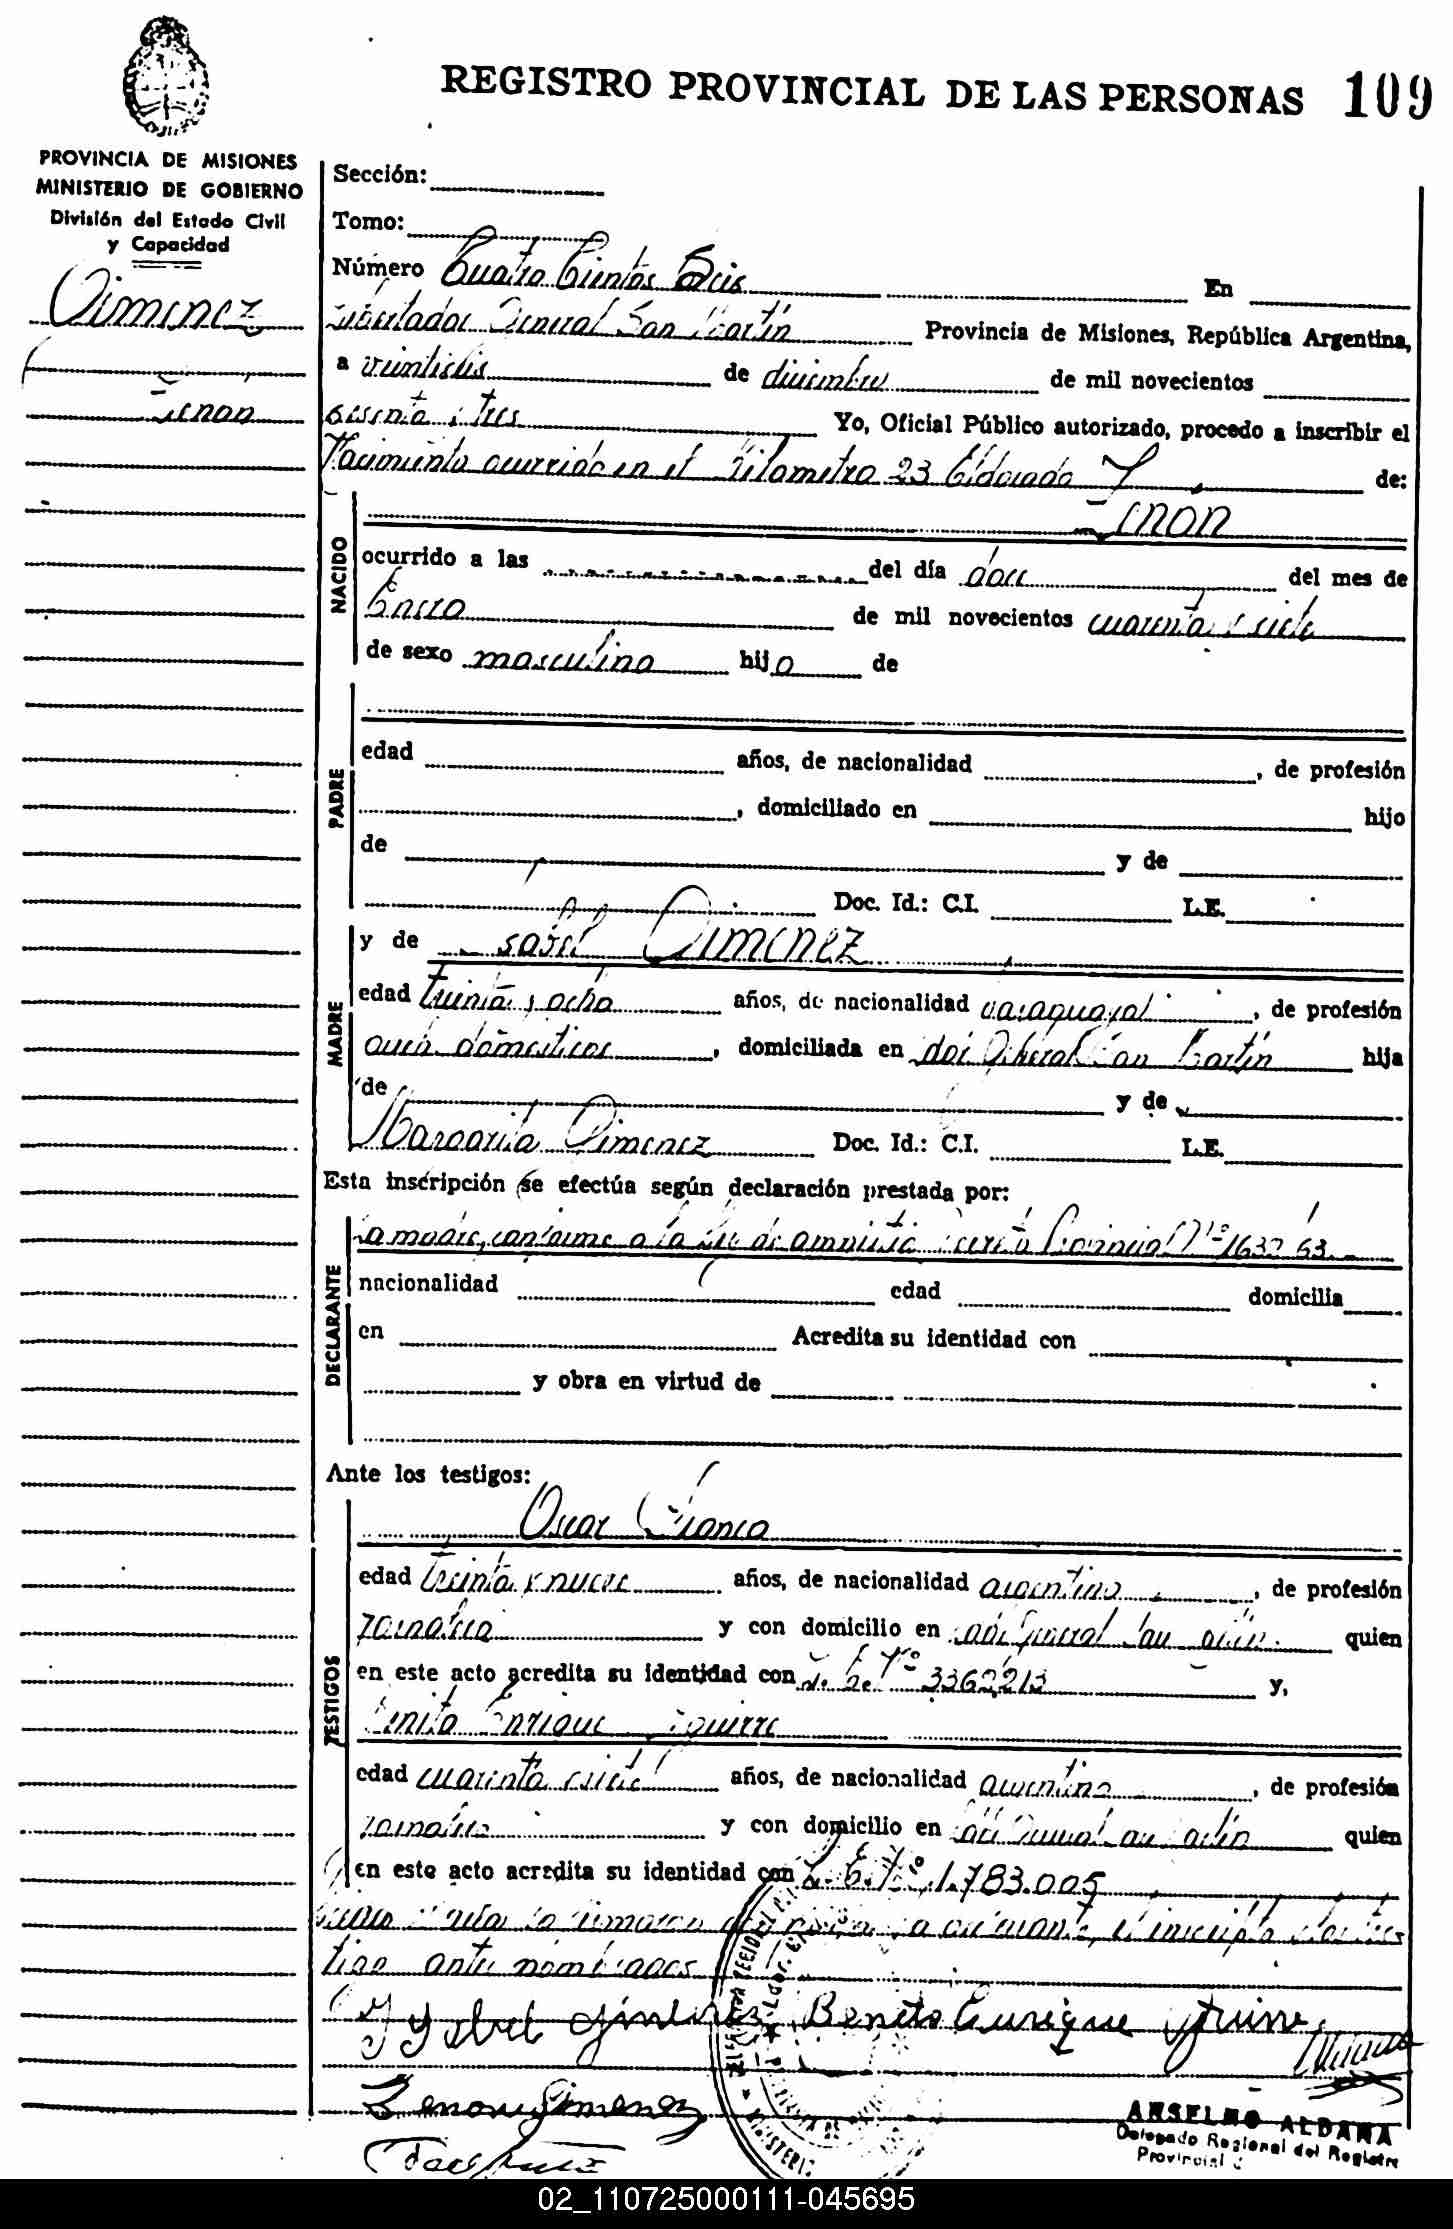 REGISTRO PROVINCIAL DE LAS PERSONAS 109
PROVINCIA DE MISIONES
MINISTERIO DE GOBIERNO
División del Estado Civil
y Capacidad
Gimenez
Zenon
Sección:
Tomo:
Número Cuatro Cientos Seis En
Libertador General San Martín Provincia de Misiones, República Argentina,
a veintiseis de diciembre de mil novecientos
sesenta y tres Yo, Oficial Público autorizado, procedo a inscribir el
Nacimiento ocurrido en el Kilometro 23 Eldorado de:
NACIDO
Zenon
ocurrido a las del día doce del mes de
Enero de mil novecientos cuarenta y siete
de sexo masculino hijo de
PADRE
edad años, de nacionalidad , de profesión
, domiciliado en hijo
de y de
Doc. Id.: C.I. L.E.
MADRE
y de Isabel Gimenez
edad treinta y ocho años, de nacionalidad paraguaya , de profesión
queh. domesticos , domiciliada en Ldor General San Martín hija
de y de
Margarita Gimenez Doc. Id.: C.I. L.E.
Esta inscripción se efectúa según declaración prestada por:
DECLARANTE
La madre, conforme a la Ley de amnistia Decreto Provincial Nº 1632/63
nacionalidad edad domicilia
en Acredita su identidad con
y obra en virtud de
Ante los testigos:
TESTIGOS
Oscar Franco
edad treinta y nueve años, de nacionalidad argentino , de profesión
jornalero y con domicilio en Ldor General San Martín quien
en este acto acredita su identidad con L. E. Nº 3362213 y,
Benito Enrique Aguirre
edad cuarenta y siete años, de nacionalidad argentino , de profesión
jornalero y con domicilio en Ldor General San Martín quien
en este acto acredita su identidad con L. E. Nº 1.783.005
Leida el acta la firmaron la declarante, el inscripto los tes
tigo ante nombrados
Ysabel Gimenez Benito Enrique Aguirre
Zenon Gimenez
ANSELMO ALDANA
Delegado Regional del Registro
Provincial
02_110725000111-045695